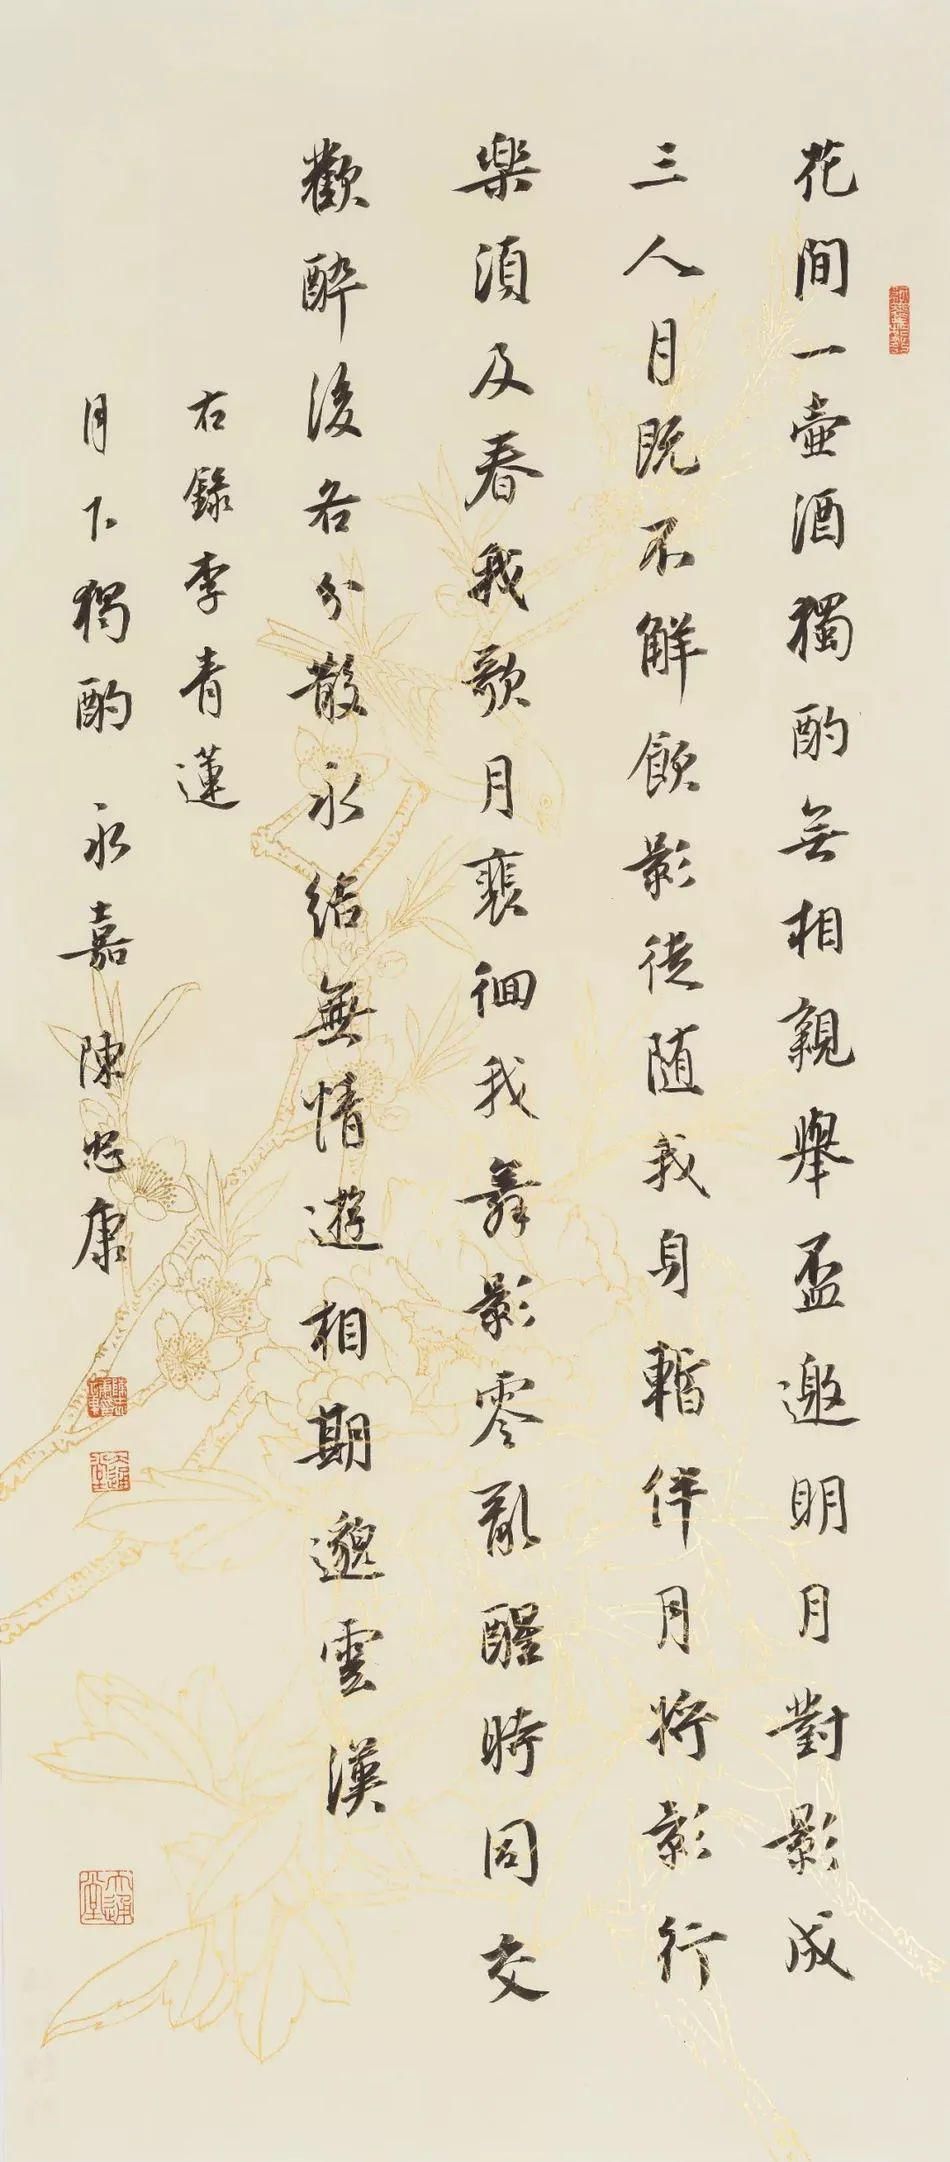 花間一壺酒獨酌無相親舉盃邀明月對影成
三人月既不解飲影徒随我身暫伴月將影行
樂須及春我歌月裴徊我舞影零亂醒時同交
歡醉後各分散永結無情遊相期邈雲漢
右録李青蓮
月下獨酌永嘉陳忠康